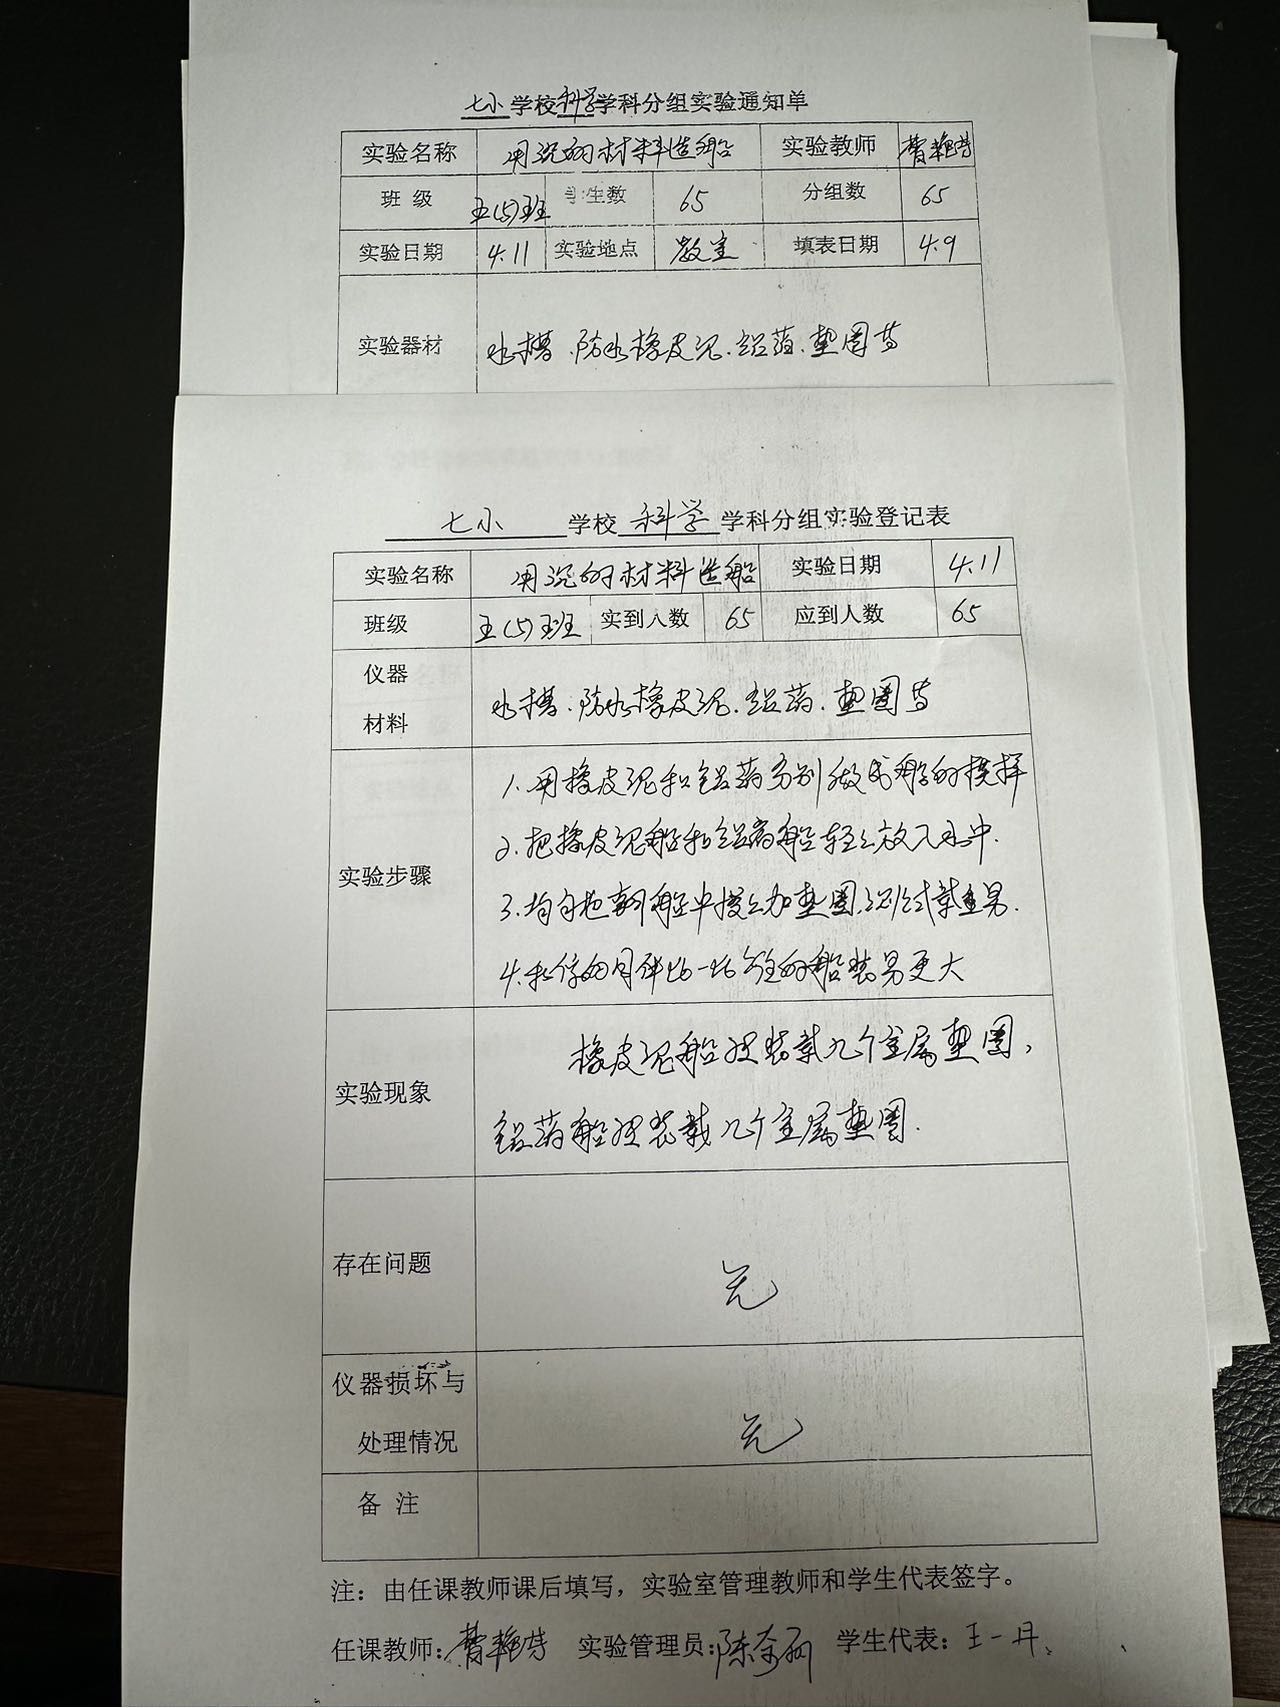 七小学校科学学科分组实验通知单
实验名称 用沉的材料造船 实验教师 曹艳芳
班 级 五(5)班 学生数 65 分组数 65
实验日期 4.11 实验地点 教室 填表日期 4.9
实验器材 水槽.防水橡皮泥.铝箔.垫圈等
七小 学校 科学 学科分组实验登记表
实验名称 用沉的材料造船 实验日期 4.11
班级 五(5)班 实到人数 65 应到人数 65
仪器
材料
水槽.防水橡皮泥.铝箔.垫圈等
实验步骤
1.用橡皮泥和铝箔分别做成船的模样
2.把橡皮泥船和铝箔船轻轻放入水中.
3.有 船中 加垫圈,测试载重量.
4.和你的同伴比一比 的船装 更大
实验现象
橡皮泥船 装载几个金属垫圈,
铝箔船 装载几个金属垫圈.
存在问题
无
仪器损坏与
处理情况
无
备 注
注:由任课教师课后填写,实验室管理教师和学生代表签字。
任课教师:曹艳芳 实验管理员:陈 学生代表:王一丹